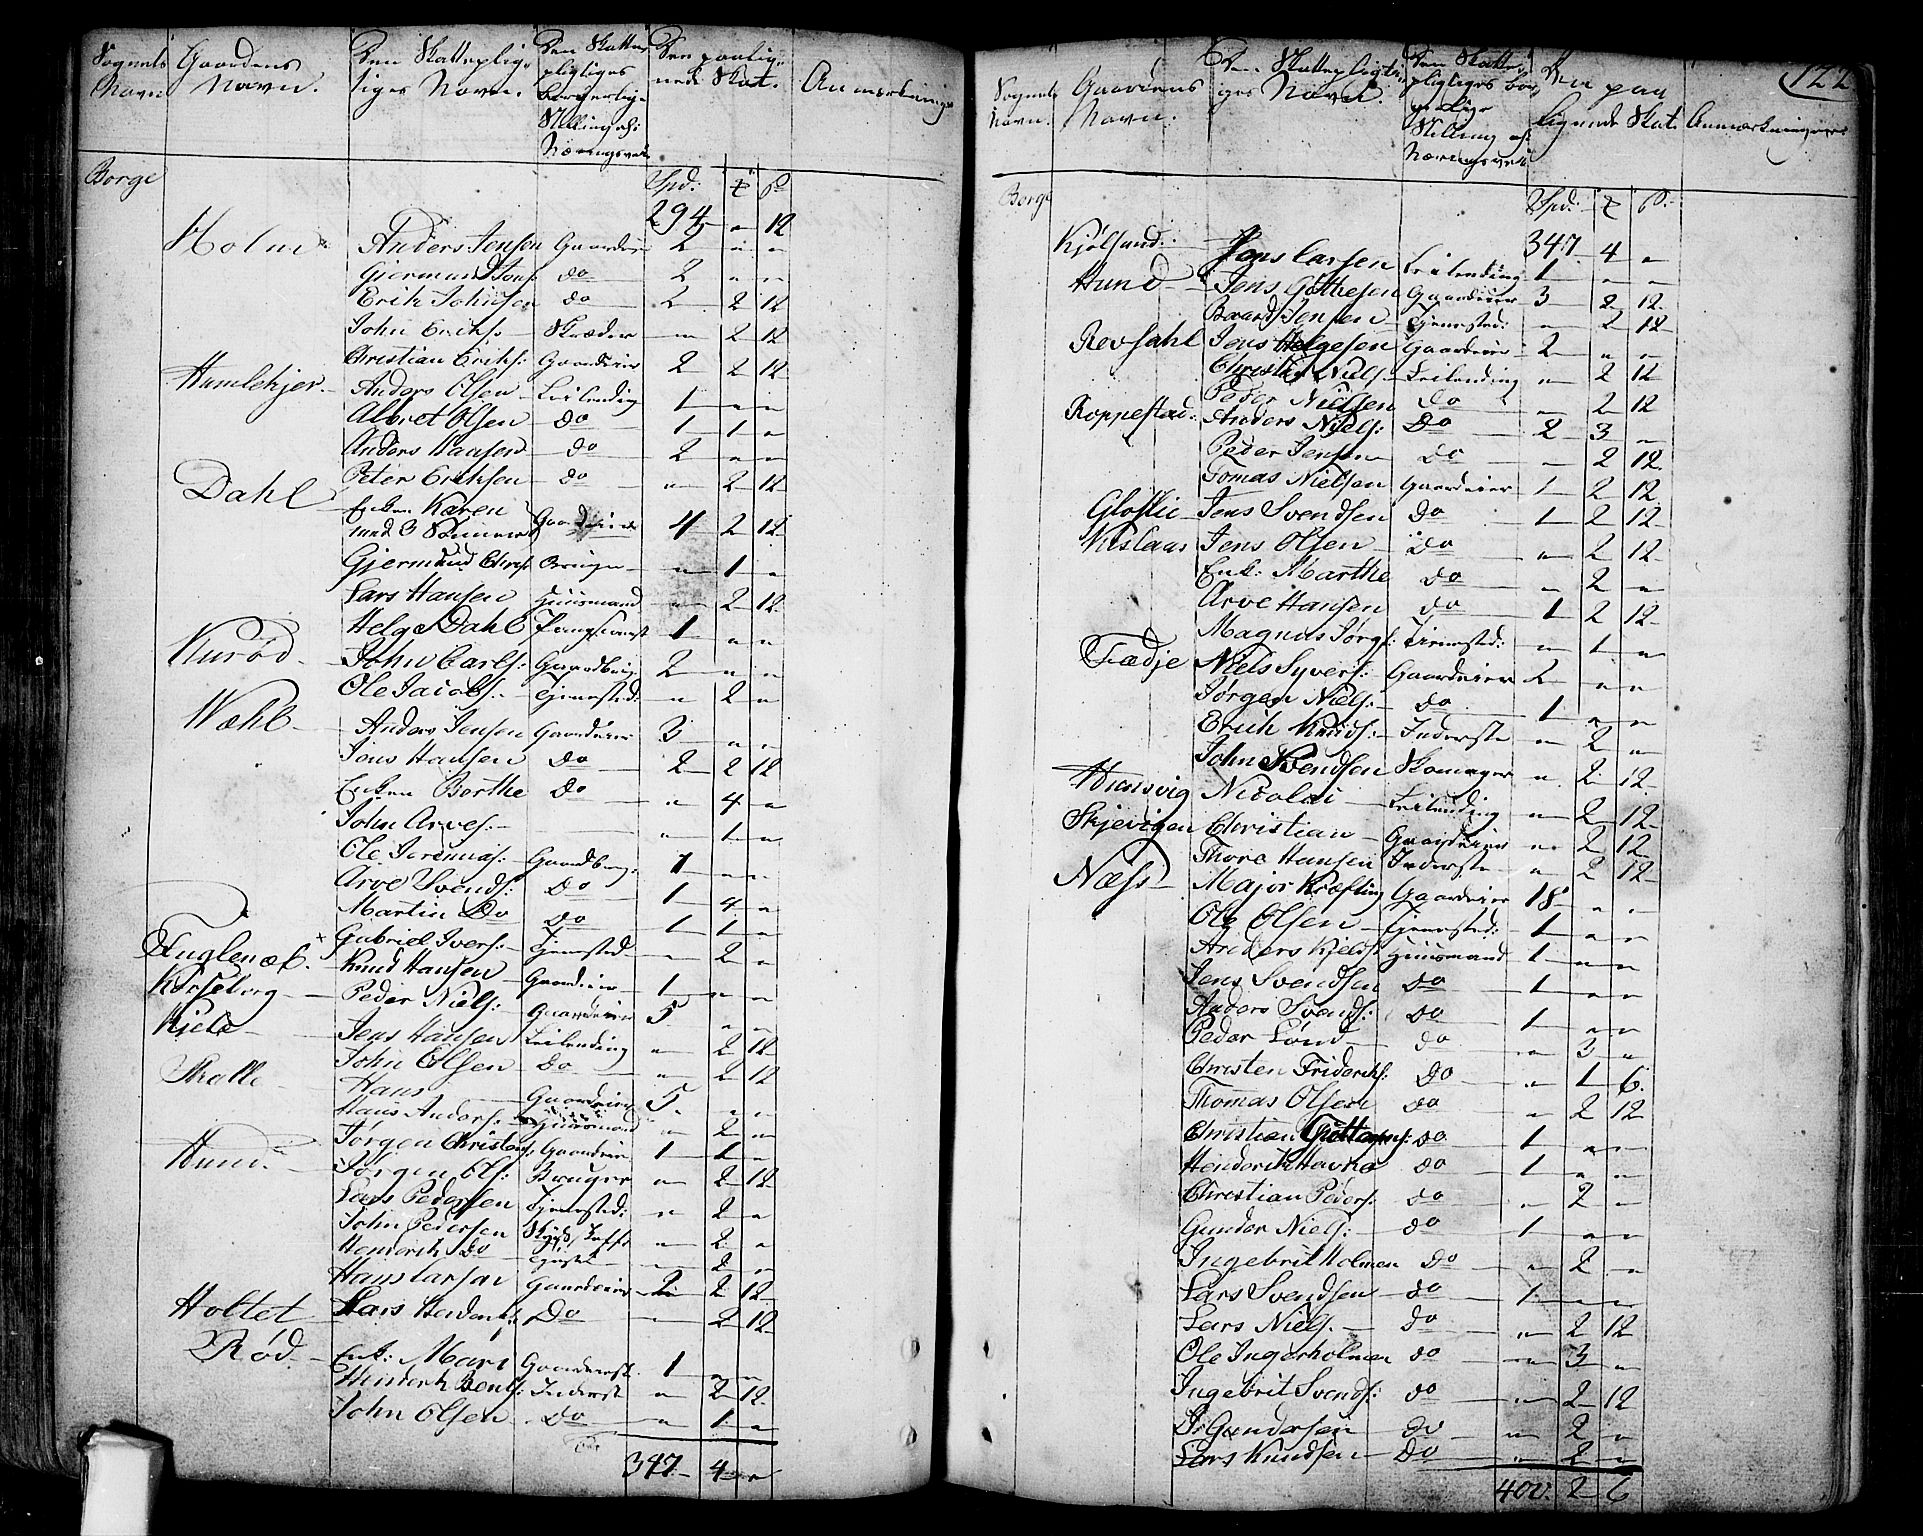 Sognets Navn. Gaardens Navn. Den Skattepligtiges Navn. Den Skattepligtiges borgerlige Stilling og Næringsvei Den paalignede Skat. Anmærkninger
Borge Spd: # ß
294 " 12
Holm Anders Jensen Gaardeier 2 " "
Gjermund Jons: do 2 " "
Erich Johnsen do 2 2 12
John Erichs: Skræder " 2 12
Christian Erichs: Gaardeier 2 2 12
Humlekjer Anders Olsen Leilending 1 " "
Albret Olsen do 1 1 "
Anders Hansen do 2 " "
Peter Erichsen do " 2 12
Dahl Enken Karen
med 3 Sønner Gaardeier 4 2 12
Gjermund Chrs: Bruger " 1 "
Lars Hansen Huusmand " 2 12
Helge Dahl 1 " "
Kurød John Carls: Gaardbrug: 2 " "
Ole Jacobs: Tjenested: " 2 "
Wæhl Anders Jensen Gaardeier 3 " "
Jens Hansen do 2 2 12
Enken Berthe Do " 4 "
John Arves: " 1 "
Ole Jeremias: Gaardbrug: 1 " "
Arve Svends: Do 1 4 "
Martin Do Do 1 1 "
Gabriel Ivers: Tjenested " 2 "
Fuglenæb. Knud Hansen Gaardeier 1 " "
Korseberg Peder Niels: Gaardeier 5 " "
Kjele Jens Hansen Leilending " 2 12
John Olsen Do " 2 12
Skolle Hans Gaardeier 5 " "
Hans Anders: Huusmand " 2 "
Hund Jørgen Christens: Gaardeier 1 1 "
Jørgen Ols: Bruger " 2 12
Lars Pedersen Tjenested: " 2 "
John Pedersen " 2 "
Henderik do " 2 "
Hans Larsen Gaardeier 2 2 12
Holtet Lars Henderik: Do " 2 12
Rød. Enk: Mari 1 " "
Henderk Bent: Inderst " 2 12
John Olsen Do " 1 "
347 4 "
122
Sognets Navn. Gaardens Navn. Den Skattepligtiges Navn. Den Skattepligtiges borgerlige Stilling og Næringsvei Den paalignede Skat. Anmærkninger
Borge Spd: # ß:
347. 4 "
Kjølsund Jens Larsen Leilending 1 " "
Hund Jens Gulliksen Gaardeier 3 2 12
Baard Jensen Tjenested: " 2 12
Revhahl Jens Helgesen Gaardeier 2 " "
Christen Niels: Leilending " 2 12
Peder Nielsen do " 2 12
Roppestad: Anders Niels: Do 2 3 "
Peder Jensen do " 2 12
Tomas Nielsen Gaardeier 1 2 12
Gloslie Jens Svendsen do 1 2 12
Jens Olsen Do " 2 12
Enk: Marthe do " 2 "
Arve Hansen do 1 2 12
Magnus Jørgs: Tjenested: " 1 "
Fædje Niels Syvers: Gaardeier 2 " "
Jørgen Niels: do 1 " "
Erich Knuds: Inderste " 2 "
John Svendsen Skomager " 2 12
Hunsvig Nicolai Leilending " 2 12
Skjevigen Christian Gaardeier " 2 12
Thore Hansen Inderste " 2 12
Næss Major Kræfting Gaardeier 18 " "
Ole Olsen Tjenested: 1 " "
Anders Kjelds: Huusmand 1 " "
Jens Svendsen Do 1 " "
Anders Svends: do 1 " "
Peder Lund do " 3 "
Christen Friderichs: Do " 1 6
Thomas Olsen do " 2 12
Christian do 1 " "
Henderik do 1 " "
Christian Peders: do " 2 "
Gunder Niels: do 1 " "
Ingebrit Holmen do " 2 "
Lars Svendsen do 1 " "
Lars Niels. do " 2 12
Ole Ingerholmen do " 3 "
Ingebrit Svends: do " 2 12
Gundersen do " 2 "
Lars Knudsen Do " 2 "
400. 2 6